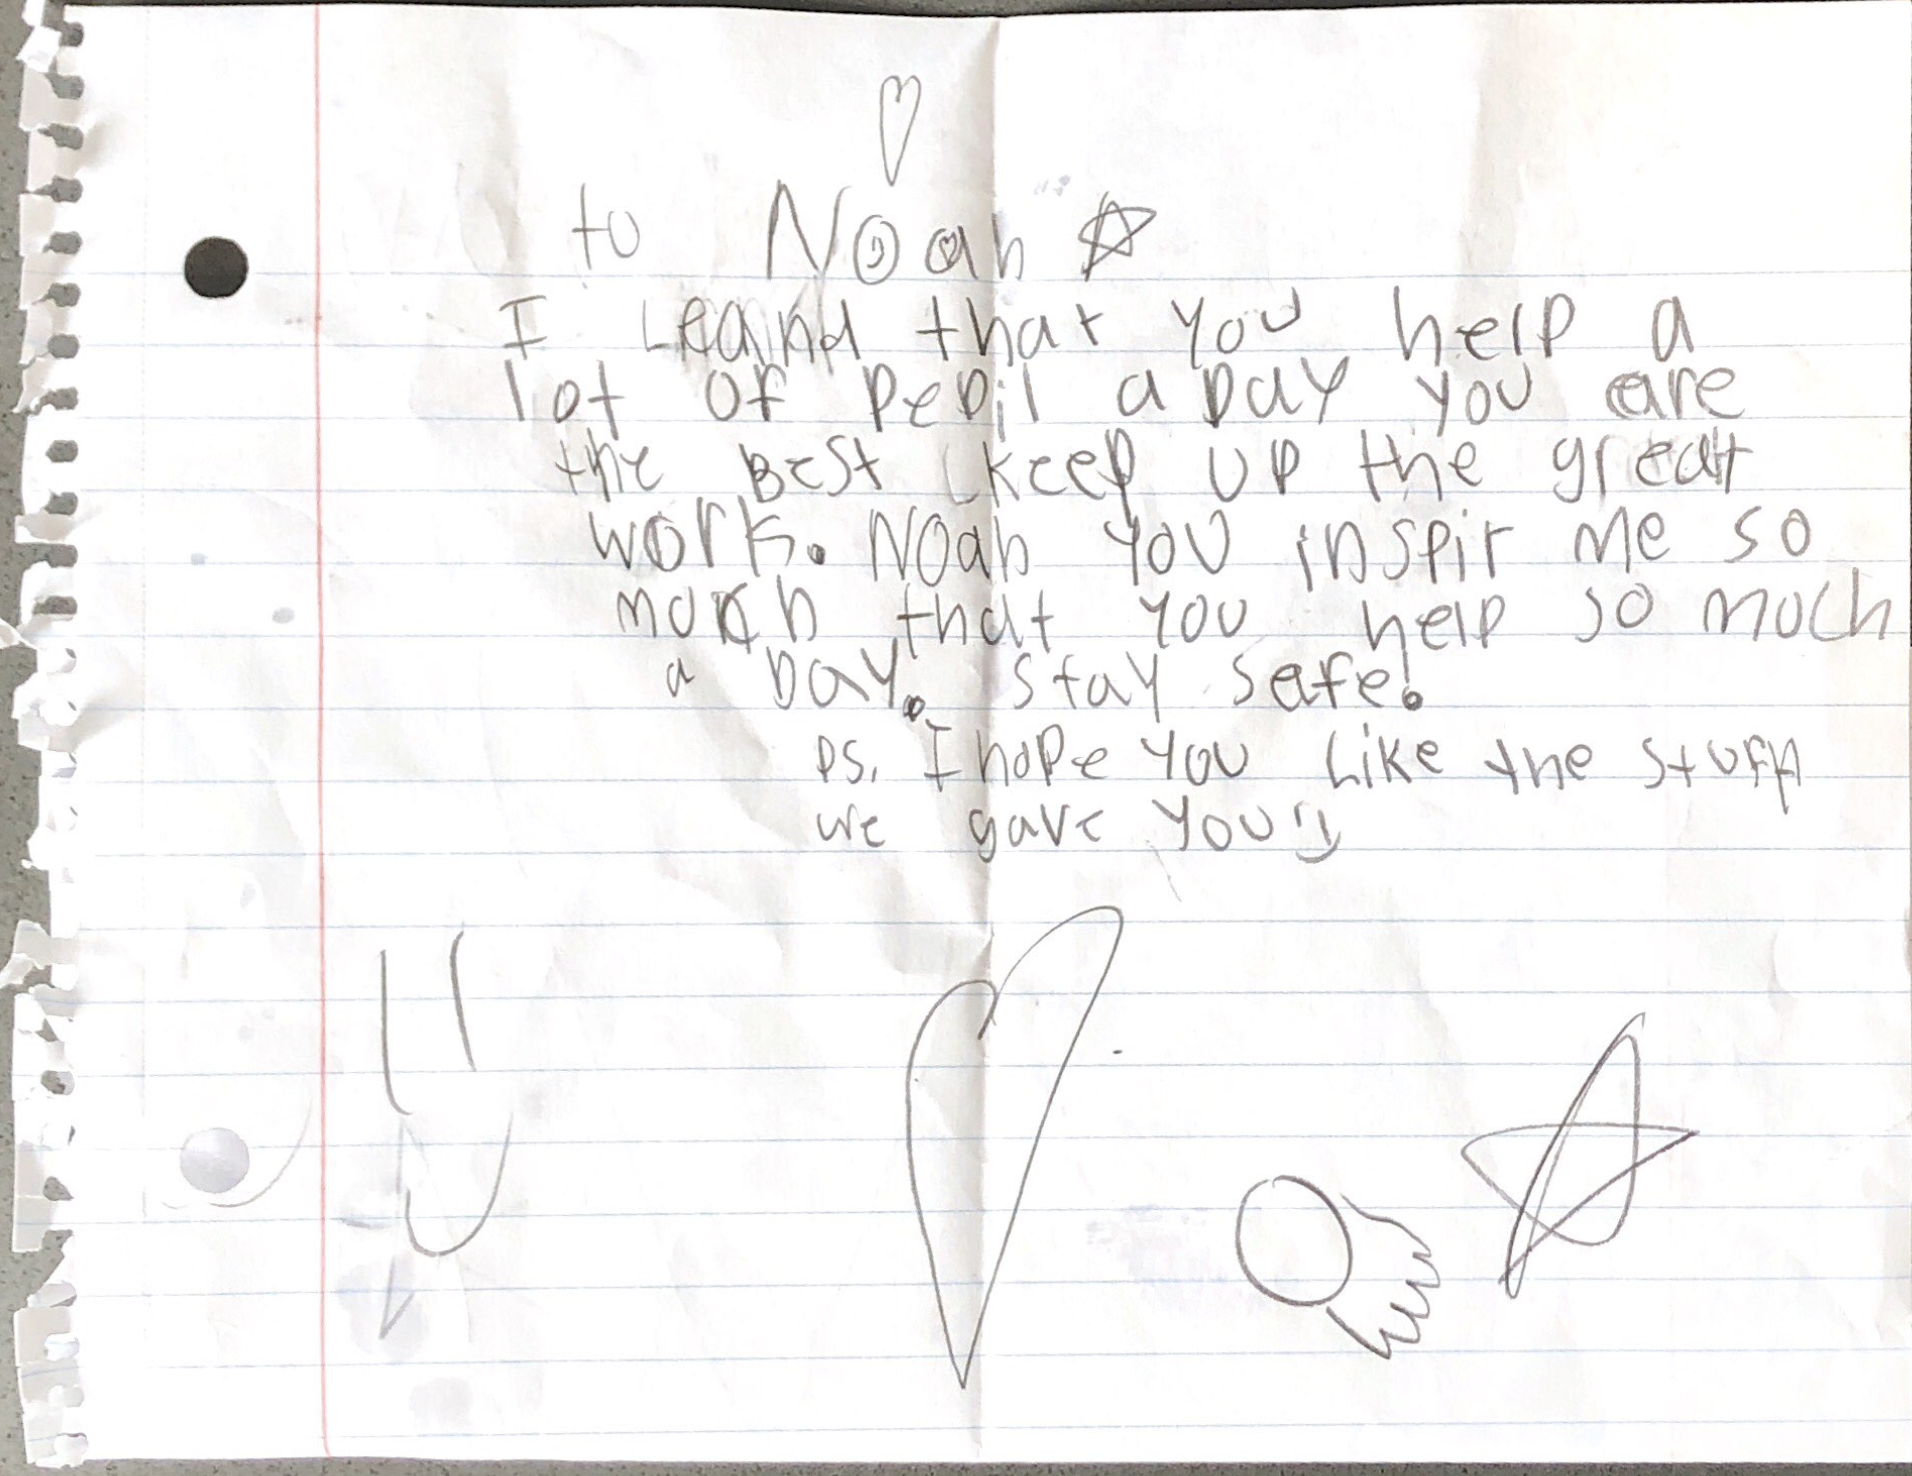 to Noah
I Leaind that you help a
lot of pepil a Day you are
the Best keep up the great
work. Noah you inspir me so
much that you help so much
a Day. Stay safe!
PS. I hope you Like the stuff
we gave you :)